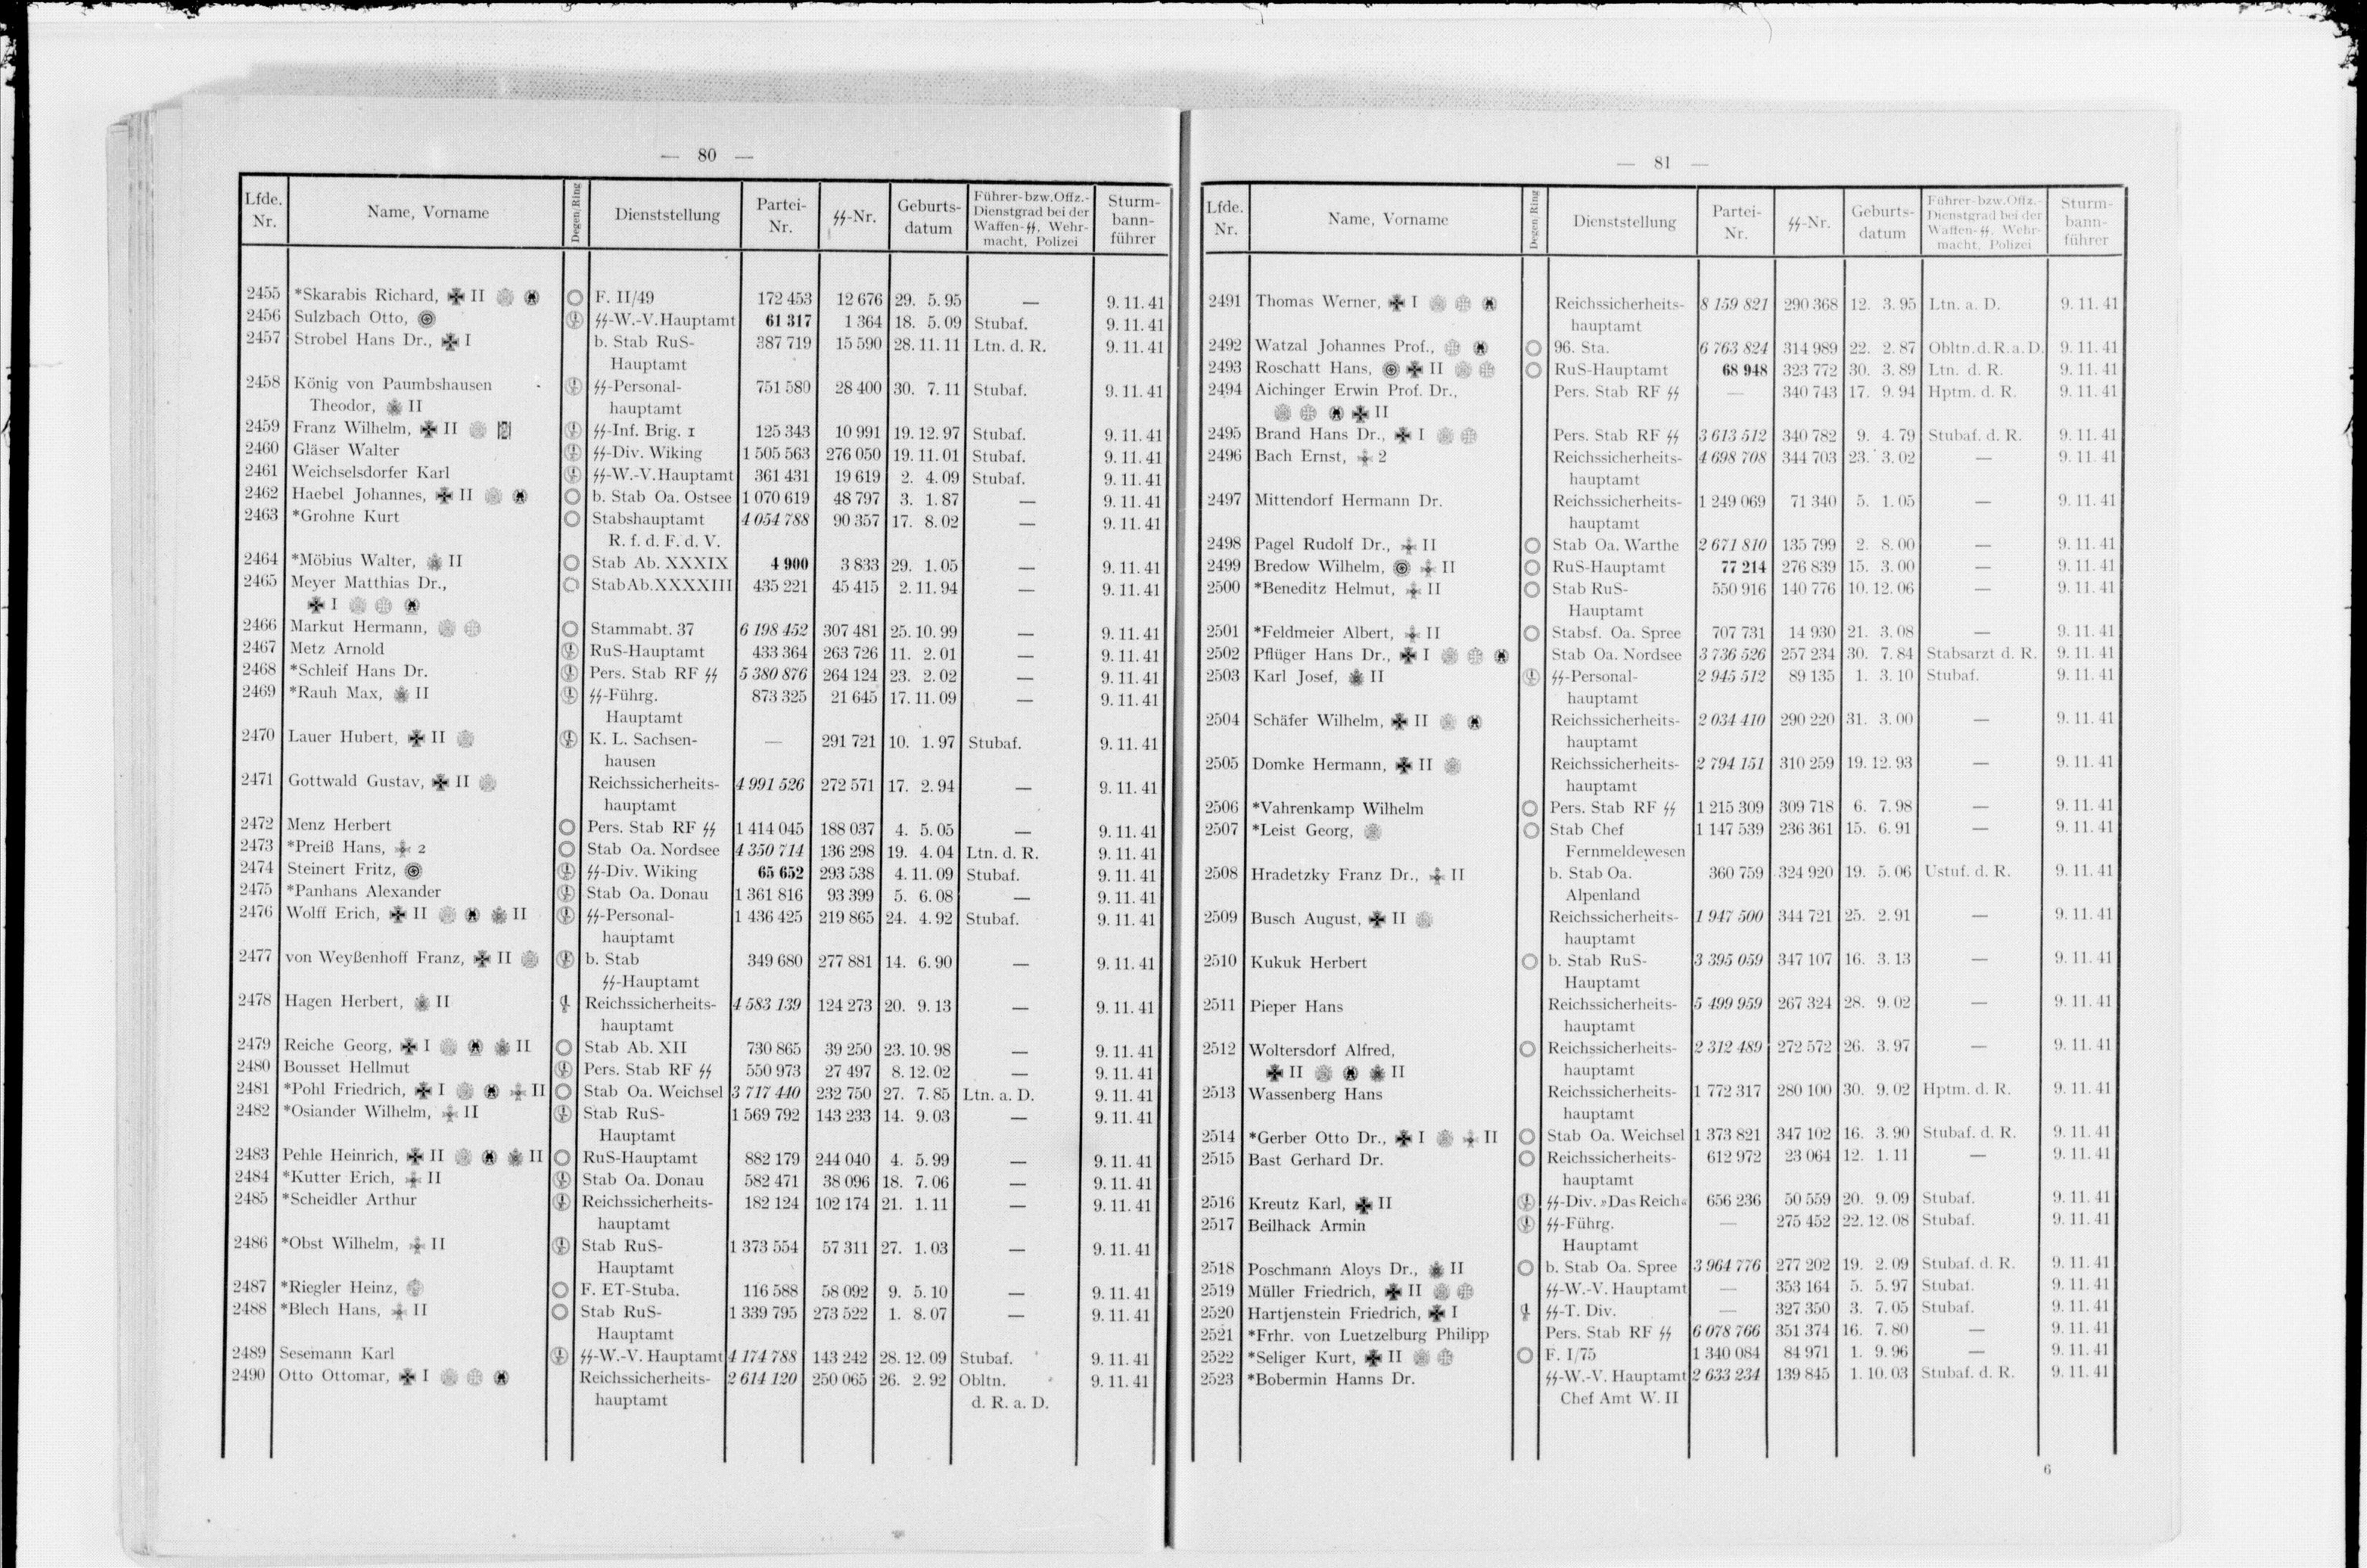 — 80 —
Lfde. Nr. Name, Vorname Degen Ring Dienststellung Partei-Nr. ᛋᛋ-Nr. Geburts-datum Führer-bzw.Offz.-Dienstgrad bei der Waffen-ᛋᛋ, Wehr-macht, Polizei Sturm-bann-führer
2455 *Skarabis Richard, II F. II/49 172 453 12 676 29. 5. 95 — 9. 11. 41
2456 Sulzbach Otto, ᛋᛋ-W.-V.Hauptamt 61 317 1 364 18. 5. 09 Stubaf. 9. 11. 41
2457 Strobel Hans Dr., I b. Stab RuS- 387 719 15 590 28. 11. 11 Ltn. d. R. 9. 11. 41
Hauptamt
2458 König von Paumbshausen ᛋᛋ-Personal- 751 580 28 400 30. 7. 11 Stubaf. 9. 11. 41
Theodor, II hauptamt
2459 Franz Wilhelm, II ᛋᛋ-Inf. Brig. 1 125 343 10 991 19. 12. 97 Stubaf. 9. 11. 41
2460 Gläser Walter ᛋᛋ-Div. Wiking 1 505 563 276 050 19. 11. 01 Stubaf. 9. 11. 41
2461 Weichselsdorfer Karl ᛋᛋ-W.-V.Hauptamt 361 431 19 619 2. 4. 09 Stubaf. 9. 11. 41
2462 Haebel Johannes, II b. Stab Oa. Ostsee 1 070 619 48 797 3. 1. 87 — 9. 11. 41
2463 *Grohne Kurt Stabshauptamt 4 054 788 90 357 17. 8. 02 — 9. 11. 41
R. f. d. F. d. V.
2464 *Möbius Walter, II Stab Ab. XXXIX 4 900 3 833 29. 1. 05 — 9. 11. 41
2465 Meyer Matthias Dr., StabAb.XXXXIII 435 221 45 415 2. 11. 94 — 9. 11. 41
I
2466 Markut Hermann, Stammabt. 37 6 198 452 307 481 25. 10. 99 — 9. 11. 41
2467 Metz Arnold RuS-Hauptamt 433 364 263 726 11. 2. 01 — 9. 11. 41
2468 *Schleif Hans Dr. Pers. Stab RF ᛋᛋ 5 380 876 264 124 23. 2. 02 — 9. 11. 41
2469 *Rauh Max, II ᛋᛋ-Führg. 873 325 21 645 17. 11. 09 — 9. 11. 41
Hauptamt
2470 Lauer Hubert, II K. L. Sachsen- — 291 721 10. 1. 97 Stubaf. 9. 11. 41
hausen
2471 Gottwald Gustav, II Reichssicherheits- 4 991 526 272 571 17. 2. 94 — 9. 11. 41
hauptamt
2472 Menz Herbert Pers. Stab RF ᛋᛋ 1 414 045 188 037 4. 5. 05 — 9. 11. 41
2473 *Preiß Hans, 2 Stab Oa. Nordsee 4 350 714 136 298 19. 4. 04 Ltn. d. R. 9. 11. 41
2474 Steinert Fritz, ᛋᛋ-Div. Wiking 65 652 293 538 4. 11. 09 Stubaf. 9. 11. 41
2475 *Panhans Alexander Stab Oa. Donau 1 361 816 93 399 5. 6. 08 — 9. 11. 41
2476 Wolff Erich, II II ᛋᛋ-Personal- 1 436 425 219 865 24. 4. 92 Stubaf. 9. 11. 41
hauptamt
2477 von Weyßenhoff Franz, II b. Stab 349 680 277 881 14. 6. 90 — 9. 11. 41
ᛋᛋ-Hauptamt
2478 Hagen Herbert, II Reichssicherheits- 4 583 139 124 273 20. 9. 13 — 9. 11. 41
hauptamt
2479 Reiche Georg, I II Stab Ab. XII 730 865 39 250 23. 10. 98 — 9. 11. 41
2480 Bousset Hellmut Pers. Stab RF ᛋᛋ 550 973 27 497 8. 12. 02 — 9. 11. 41
2481 *Pohl Friedrich, I II Stab Oa. Weichsel 3 717 440 232 750 27. 7. 85 Ltn. a. D. 9. 11. 41
2482 *Osiander Wilhelm, II Stab RuS- 1 569 792 143 233 14. 9. 03 — 9. 11. 41
Hauptamt
2483 Pehle Heinrich, II II RuS-Hauptamt 882 179 244 040 4. 5. 99 — 9. 11. 41
2484 *Kutter Erich, II Stab Oa. Donau 582 471 38 096 18. 7. 06 — 9. 11. 41
2485 *Scheidler Arthur Reichssicherheits- 182 124 102 174 21. 1. 11 — 9. 11. 41
hauptamt
2486 *Obst Wilhelm, II Stab RuS- 1 373 554 57 311 27. 1. 03 — 9. 11. 41
Hauptamt
2487 *Riegler Heinz, F. ET-Stuba. 116 588 58 092 9. 5. 10 — 9. 11. 41
2488 *Blech Hans, II Stab RuS- 1 339 795 273 522 1. 8. 07 — 9. 11. 41
Hauptamt
2489 Sesemann Karl ᛋᛋ-W.-V. Hauptamt 4 174 788 143 242 28. 12. 09 Stubaf. 9. 11. 41
2490 Otto Ottomar, I Reichssicherheits- 2 614 120 250 065 26. 2. 92 Obltn. 9. 11. 41
hauptamt d. R. a. D.
— 81 —
Lfde. Nr. Name, Vorname Degen Ring Dienststellung Partei-Nr. ᛋᛋ-Nr. Geburts-datum Führer-bzw.Offz.-Dienstgrad bei der Waffen-ᛋᛋ, Wehr-macht, Polizei Sturm-bann-führer
2491 Thomas Werner, I Reichssicherheits- 8 159 821 290 368 12. 3. 95 Ltn. a. D. 9. 11. 41
hauptamt
2492 Watzal Johannes Prof., 96. Sta. 6 763 824 314 989 22. 2. 87 Obltn.d.R.a.D. 9. 11. 41
2493 Roschatt Hans, II RuS-Hauptamt 68 948 323 772 30. 3. 89 Ltn. d. R. 9. 11. 41
2494 Aichinger Erwin Prof. Dr., Pers. Stab RF ᛋᛋ — 340 743 17. 9. 94 Hptm. d. R. 9. 11. 41
II
2495 Brand Hans Dr., I Pers. Stab RF ᛋᛋ 3 613 512 340 782 9. 4. 79 Stubaf. d. R. 9. 11. 41
2496 Bach Ernst, 2 Reichssicherheits- 4 698 708 344 703 23. 3. 02 — 9. 11. 41
hauptamt
2497 Mittendorf Hermann Dr. Reichssicherheits- 1 249 069 71 340 5. 1. 05 — 9. 11. 41
hauptamt
2498 Pagel Rudolf Dr., II Stab Oa. Warthe 2 671 810 135 799 2. 8. 00 — 9. 11. 41
2499 Bredow Wilhelm, II RuS-Hauptamt 77 214 276 839 15. 3. 00 — 9. 11. 41
2500 *Beneditz Helmut, II Stab RuS- 550 916 140 776 10. 12. 06 — 9. 11. 41
Hauptamt
2501 *Feldmeier Albert, II Stabsf. Oa. Spree 707 731 14 930 21. 3. 08 — 9. 11. 41
2502 Pflüger Hans Dr., I Stab Oa. Nordsee 3 736 526 257 234 30. 7. 84 Stabsarzt d. R. 9. 11. 41
2503 Karl Josef, II ᛋᛋ-Personal- 2 945 512 89 135 1. 3. 10 Stubaf. 9. 11. 41
hauptamt
2504 Schäfer Wilhelm, II Reichssicherheits- 2 034 410 290 220 31. 3. 00 — 9. 11. 41
hauptamt
2505 Domke Hermann, II Reichssicherheits- 2 794 151 310 259 19. 12. 93 — 9. 11. 41
hauptamt
2506 *Vahrenkamp Wilhelm Pers. Stab RF ᛋᛋ 1 215 309 309 718 6. 7. 98 — 9. 11. 41
2507 *Leist Georg, Stab Chef 1 147 539 236 361 15. 6. 91 — 9. 11. 41
Fernmeldewesen
2508 Hradetzky Franz Dr., II b. Stab Oa. 360 759 324 920 19. 5. 06 Ustuf. d. R. 9. 11. 41
Alpenland
2509 Busch August, II Reichssicherheits- 1 947 500 344 721 25. 2. 91 — 9. 11. 41
hauptamt
2510 Kukuk Herbert b. Stab RuS- 3 395 059 347 107 16. 3. 13 — 9. 11. 41
Hauptamt
2511 Pieper Hans Reichssicherheits- 5 499 959 267 324 28. 9. 02 — 9. 11. 41
hauptamt
2512 Woltersdorf Alfred, Reichssicherheits- 2 312 489 272 572 26. 3. 97 — 9. 11. 41
II II hauptamt
2513 Wassenberg Hans Reichssicherheits- 1 772 317 280 100 30. 9. 02 Hptm. d. R. 9. 11. 41
hauptamt
2514 *Gerber Otto Dr., I II Stab Oa. Weichsel 1 373 821 347 102 16. 3. 90 Stubaf. d. R. 9. 11. 41
2515 Bast Gerhard Dr. Reichssicherheits- 612 972 23 064 12. 1. 11 — 9. 11. 41
hauptamt
2516 Kreutz Karl, II ᛋᛋ-Div. »Das Reich« 656 236 50 559 20. 9. 09 Stubaf. 9. 11. 41
2517 Beilhack Armin ᛋᛋ-Führg. — 275 452 22. 12. 08 Stubaf. 9. 11. 41
Hauptamt
2518 Poschmann Aloys Dr., II b. Stab Oa. Spree 3 964 776 277 202 19. 2. 09 Stubaf. d. R. 9. 11. 41
2519 Müller Friedrich, II ᛋᛋ-W.-V. Hauptamt — 353 164 5. 5. 97 Stubaf. 9. 11. 41
2520 Hartjenstein Friedrich, I ᛋᛋ-T. Div. — 327 350 3. 7. 05 Stubaf. 9. 11. 41
2521 *Frhr. von Luetzelburg Philipp Pers. Stab RF ᛋᛋ 6 078 766 351 374 16. 7. 80 — 9. 11. 41
2522 *Seliger Kurt, II F. I/75 1 340 084 84 971 1. 9. 96 — 9. 11. 41
2523 *Bobermin Hanns Dr. ᛋᛋ-W.-V. Hauptamt 2 633 234 139 845 1. 10. 03 Stubaf. d. R. 9. 11. 41
Chef Amt W. II
6